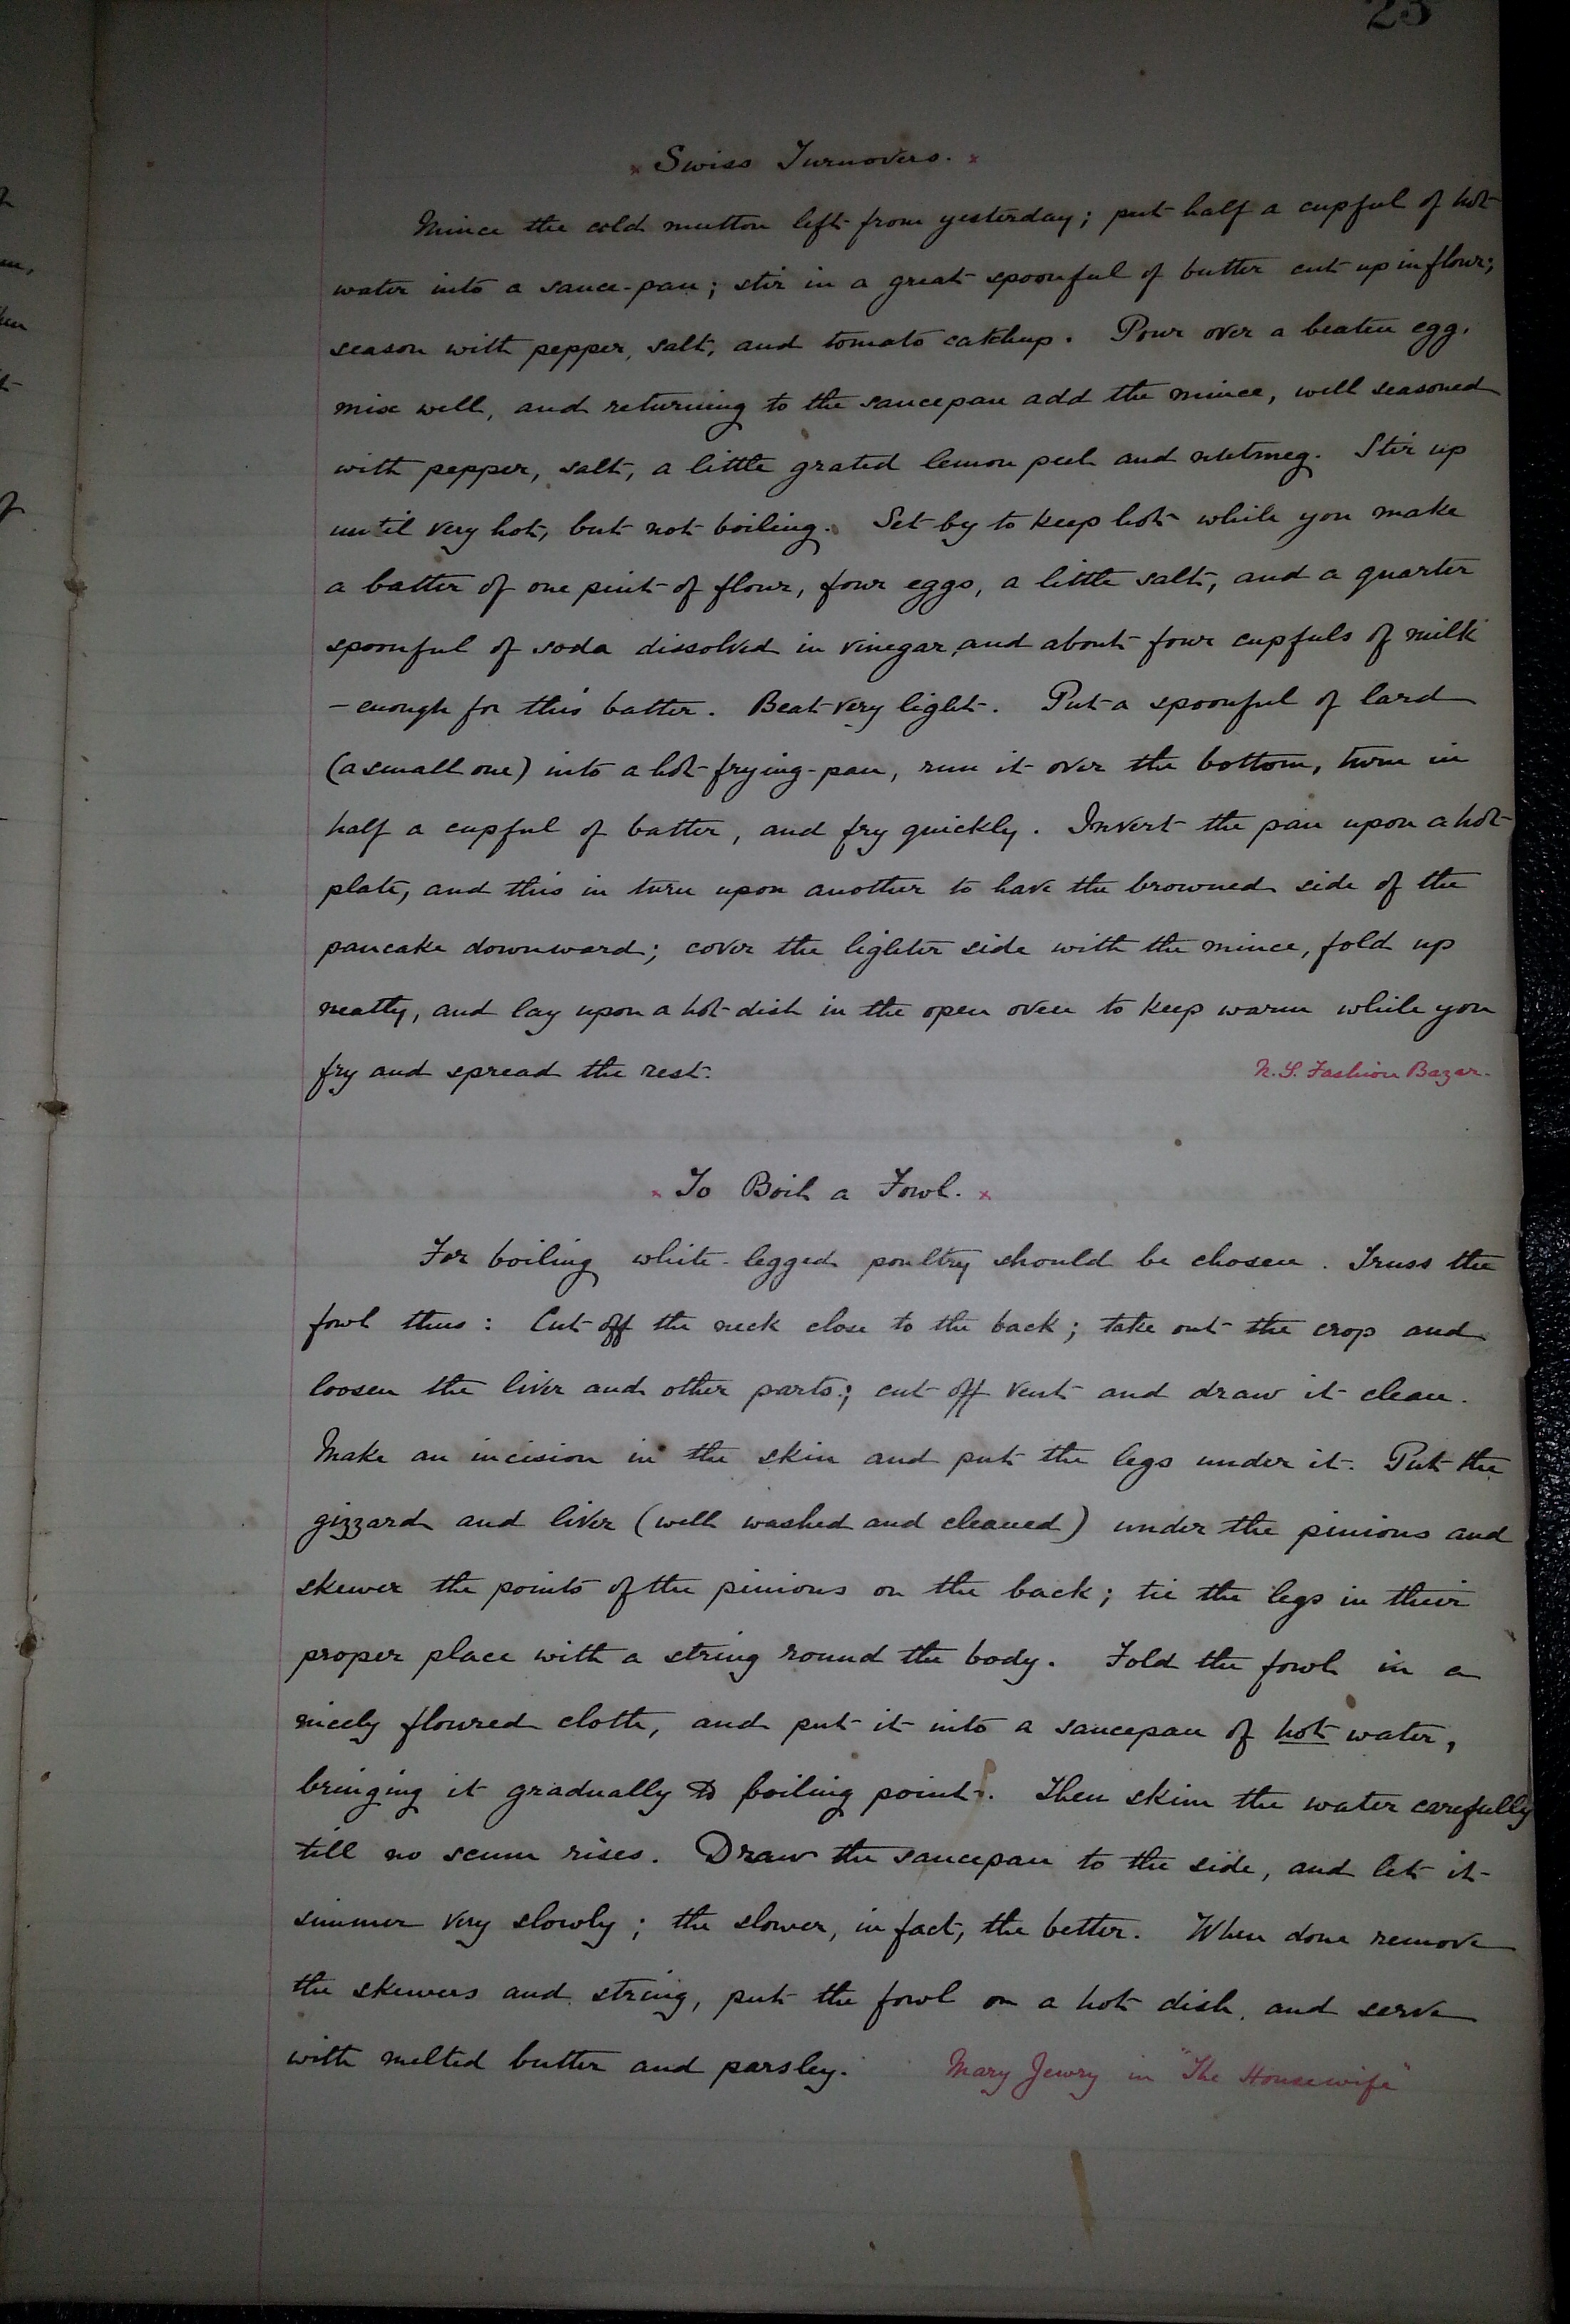 23
× Swiss Turnovers. ×
Mince the cold mutton left from yesterday; put half a cupful of hot
water into a sauce-pan; stir in a great spoonful of butter cut up in flour;
season with pepper, salt, and tomato catchup. Pour over a beaten egg,
mix well, and returning to the saucepan add the mince, well seasoned
with pepper, salt, a little grated lemon peel and nutmeg. Stir up
until very hot, but not boiling. Set by to keep hot while you make
a batter of one pint of flour, four eggs, a little salt, and a quarter
spoonful of soda dissolved in vinegar, and about four cupfuls of milk
- enough for this batter. Beat very light. Put a spoonful of lard
(a small one) into a hot frying-pan, run it over the bottom, turn in
half a cupful of batter, and fry quickly. Invert the pan upon a hot
plate, and this in turn upon another to have the browned side of the
pancake downward; cover the lighter side with the mince, fold up
neatly, and lay upon a hot dish in the open oven to keep warm while you
fry and spread the rest. Fashion Bazar.
× To Boil a Fowl. ×
For boiling white-legged poultry should be chosen. Truss the
fowl thus: Cut off the neck close to the back; take out the crop and
loosen the liver and other parts; cut off vent and draw it clean.
Make an incision in the skin and put the legs under it. Put the
gizzard and liver (well washed and cleaned) under the pinions and
skewer the points of the pinions on the back; tie the legs in their
proper place with a string round the body. Fold the fowl in a
nicely floured cloth, and put it into a saucepan of hot water,
bringing it gradually to boiling point. Then skim the water carefully
till no scum rises. Draw the saucepan to the side, and let it
simmer very slowly; the slower, in fact, the better. When done remove
the skewers and string, put the fowl on a hot dish, and serve
with melted butter and parsley. Mary Jewry in "The Housewife"